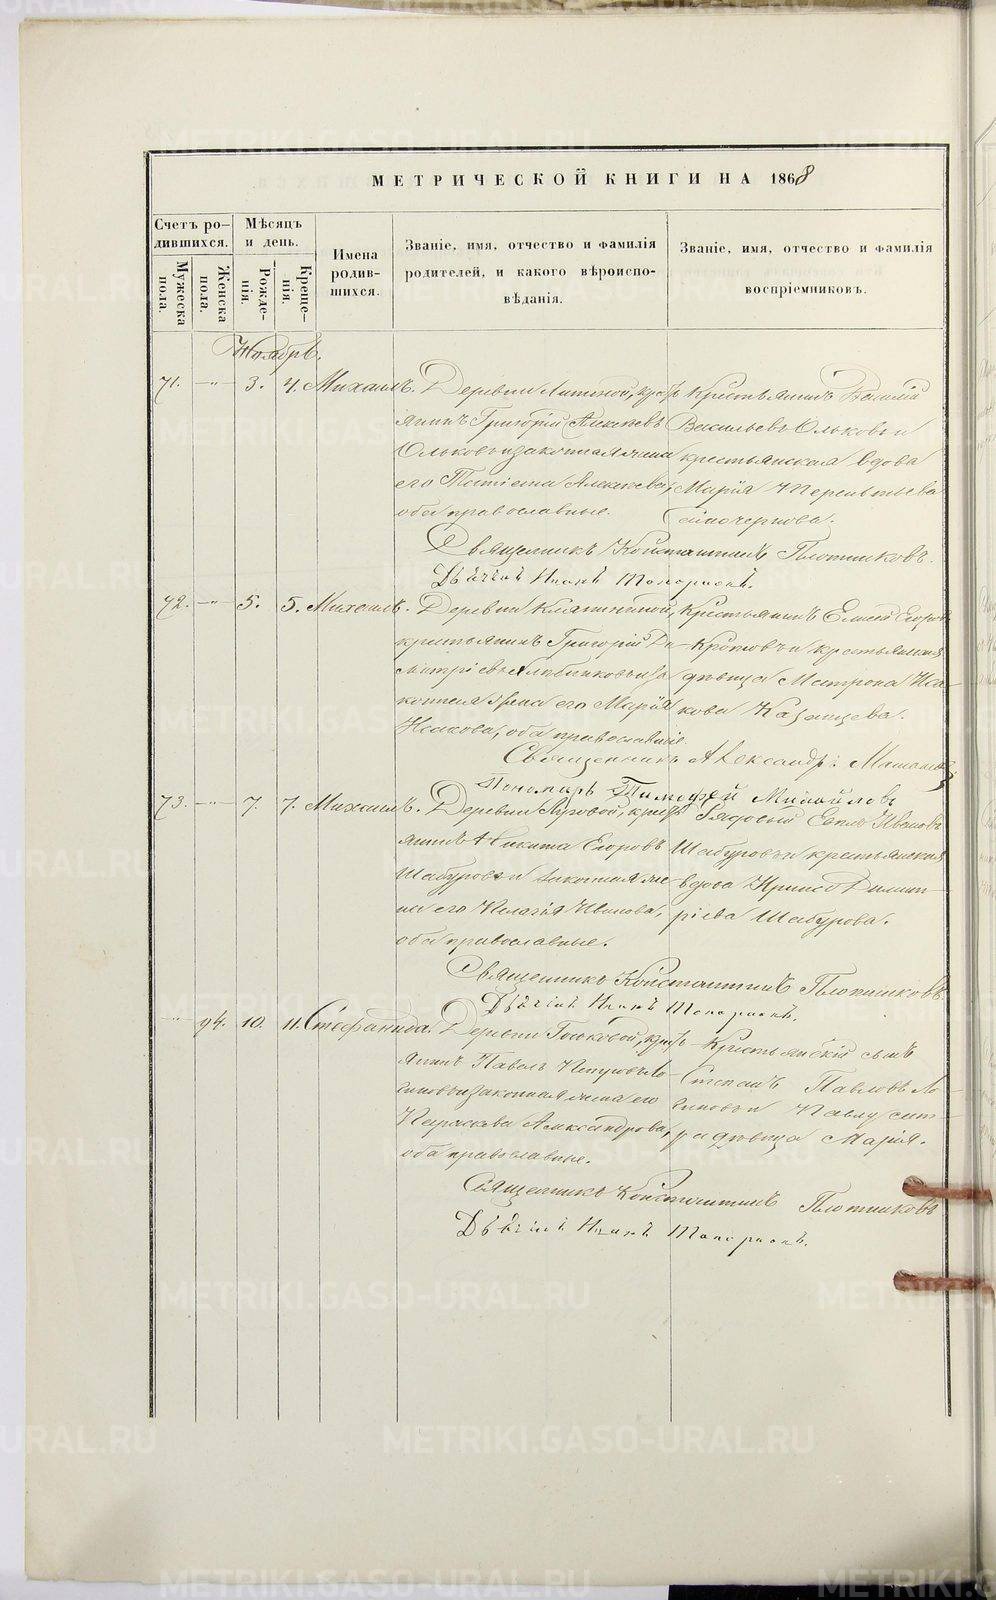 МЕТРИЧЕСКОЙ КНИГИ НА 1868
Счетъ ро-
дившихся.
Мѣсяцъ
и день.
Мужеска
пола.
Женска
пола.
Рожде-
нія.
Креще-
нія.
Имена
родив-
шихся.
Званіе, имя, отчество и фамилія
родителей, и какого вѣроиспо-
вѣданія.
Званіе, имя, отчество и фамилія
воспріемниковъ.
Ноябрь.
71. —"— 3. 4. Михаилъ.
Деревни крестъ
янинъ Григорій Алексѣевъ
Ольковъ и законная жена
его Татіана Алексѣева,
оба православные.
Крестьянинъ Василій
Васильевъ Ольковъ и
крестьянская вдова
Марія Терентьева
Самочернова.
Священникъ Константинъ Плотниковъ.
Дьячекъ Иванъ Топорковъ.
72. —"— 5. 5. Михаилъ.
Деревни
крестьянинъ Григорій Ди-
митріевъ и за
конная жена его Марія
Исакова, оба православные
Крестьянинъ Елисей Егоровъ
Кротовъ и крестьянская
дѣвица Матрона Иса-
кова Казанцева.
Священникъ Александръ
Пономарь Тимофей Михайловъ
73. —"— 7. 7. Михаилъ.
Деревни крестъ
янинъ Никита Егоровъ
Шабуровъ и законная же
на его Пелагія Иванова,
оба православные.
Рядовый Иванов
Шабуровъ и крестьянская
вдова Димит-
ріева Шабурова.
Священникъ Константинъ Плотниковъ
Дьячекъ Иванъ Топорковъ.
" 94. 10. 11. Стефанида.
Деревни крестъ
янинъ Павелъ Петровъ Ло-
гиновъ и законная жена его
Параскева Александрова,
оба православные.
Крестьянскій сынъ
Степанъ Павловъ Ло-
гиновъ и Павлу сест-
ра дѣвица Марія.
Священникъ Константинъ Плотниковъ
Дьячекъ Иванъ Топорковъ.
METRIKI.GASO-URAL.RU